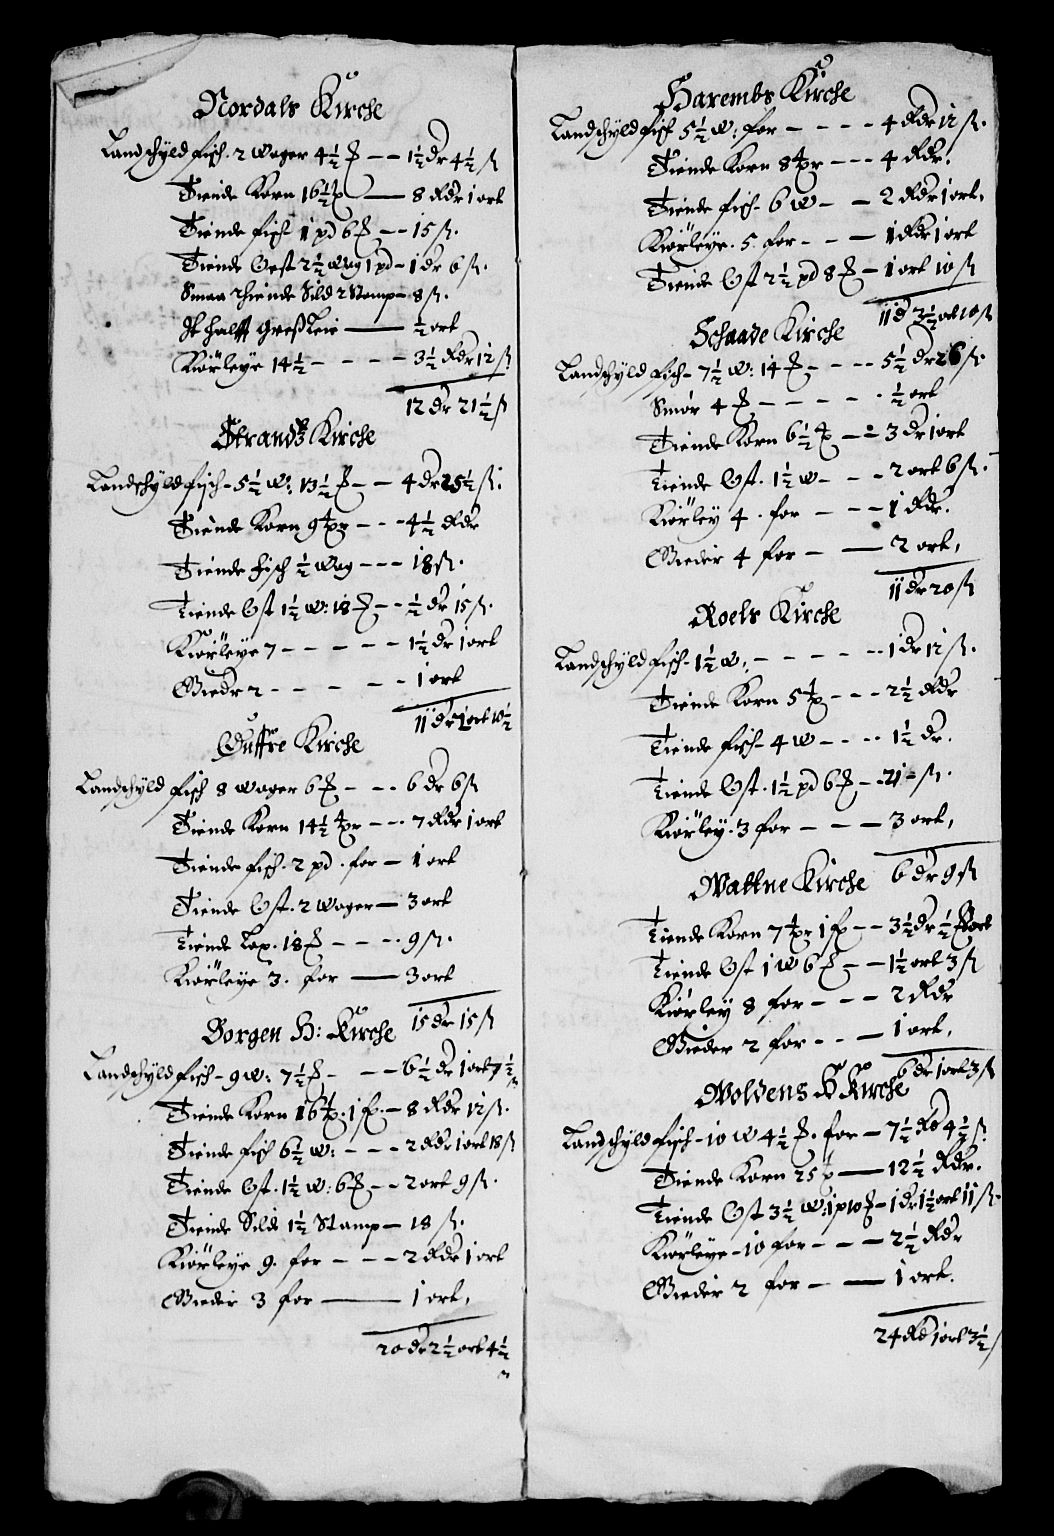 Nordals Kirche
Landschÿld fisch. 2 Woger 4½ ℔ — — 1½ dr 4½ ß
Tiende Korn 16½ tp — 8 Rdr 1 ort
Tiende fisch 1 pd 6 ℔ — — 15 ß.
Tiende Oest 2½ Wog 1 pd — 1 dr 6 ß.
Smaa Thiende Sild 2 Stamp — 8 ß.
Greß Leie — ½ ort
Kiörleÿe 14½ — — — — 3½ Rdr 12 ß
12 dr 21½ ß
Strandz Kirche
Landschÿld fisch — 5½ W: 13½ ℔ — — 4 dr 25½ ß.
Tiende Korn 9 tpr — — — 4½ Rdr
Tiende fisch ½ Wog — — — 18 ß.
Tiende Ost 1½ W: 18 ℔ — — ½ dr 15 ß.
Kiörleÿe 7 — — — — — 1½ dr 1 ort
Gieder 2 — — — — — 1 ort
11 dr 1 ort 10½
Guffre Kirche
Landschÿld fisch 8 Woger 6 ℔ — — . 6 dr 6 ß
Tiende Korn 14½ tpr — — . 7 Rdr 1 ort
Tiende fisch. 2 pd. for — 1 ort
Tiende Ost. 2 Woger — 3 ort
Tiende Lax. 18 ℔ — — — . 9 ß.
Kiörleÿe 3. for — 3 ort
15 dr 15 ß
Borgen H: Kirche
Landschÿld fisch — 9 W: 7½ ℔ — — — 6½ dr 1 ort 7½ ß
Tiende Korn 16 tp. 1 fp. — 8 Rdr 12 ß.
Tiende fisch 6½ W: — — — 2 Rdr 1 ort 18 ß
Tiende Ost. 1½ W: 6 ℔ — — 2 ort 9 ß.
Tiende Sild 1½ Stamp — 18 ß.
Kiörleÿe 9. for — — — 2 Rdr 1 ort
Gieder 3 for — 1 ort,
20 dr 2½ ort 4½ ß
Harembs Kirche
Landschÿld fisch 5½ W: for — — — — 4 Rdr 12 ß.
Tiende Korn 8 tpr — — — 4 Rdr.
Tiende fisch — 6 W — — 2 Rdr 1 ort,
Kiörleÿe. 5. for — — — 1 Rdr 1 ort
Tiende Ost 2½ pd 8 ℔ — 1 ort 10 ß
11 d 2½ ort 10 ß
Schaade Kirche
Landschÿld fisch — 7½ W: 14 ℔ — — — — 5½ dr 26 ß.
Smör 4 ℔ — — — — — . ½ ort
Tiende Korn 6½ tp — — 3 dr 1 ort
Tiende Ost. 1½ W — — — 2 ort 6 ß.
Kiörleÿ 4 . for — — — 1 Rdr.
Gieder 4 for — — 2 ort,
11 dr 20 ß
Roels Kirche
Landschÿld fisch — 1½ W: — — — — — 1 dr 12 ß.
Tiende Korn 5 tp — — — 2½ Rdr
Tiende fisch — 4 W — — — . 1½ dr.
Tiende Ost. 1½ pd 6 ℔ — . 21 — ß.
Kiörleÿ. 3 for — — — 3 ort,
6 dr 9 ß
Wattne Kirche
Tiende Korn 7 tpr 1 fp — — 3½ dr ½ ort
Tiende Ost 1 W 6 ℔ — — 1½ ort 3 ß
Kiörleÿ 8 for — — — 2 Rdr
Gieder 2 for — — — 1 ort,
6 dr 1 ort 3 ß
Woldens H Kirche
Landschÿld fisch — 10 W 4½ ℔. for — 7½ Rd 4½ ß.
Tiende Korn 25 tp — 12½ Rdr.
Tiende Ost 3½ W: 1 p 10 ℔ — 1 dr 1½ ort 11 ß —
Kiörleÿe — 10 for — — — 2½ Rdr
Gieder 2 for — — 1 ort.
24 Rd 1 ort 3½ ß